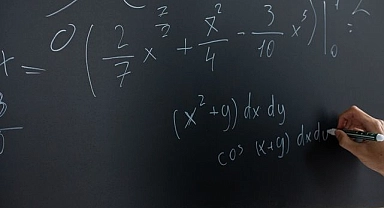 = 0 ( 2/7 x^7/2 + x^2/4 - 3/10 x^5 ) |_0
(x^2 + y) dx dy
cos (x+y) dx dy